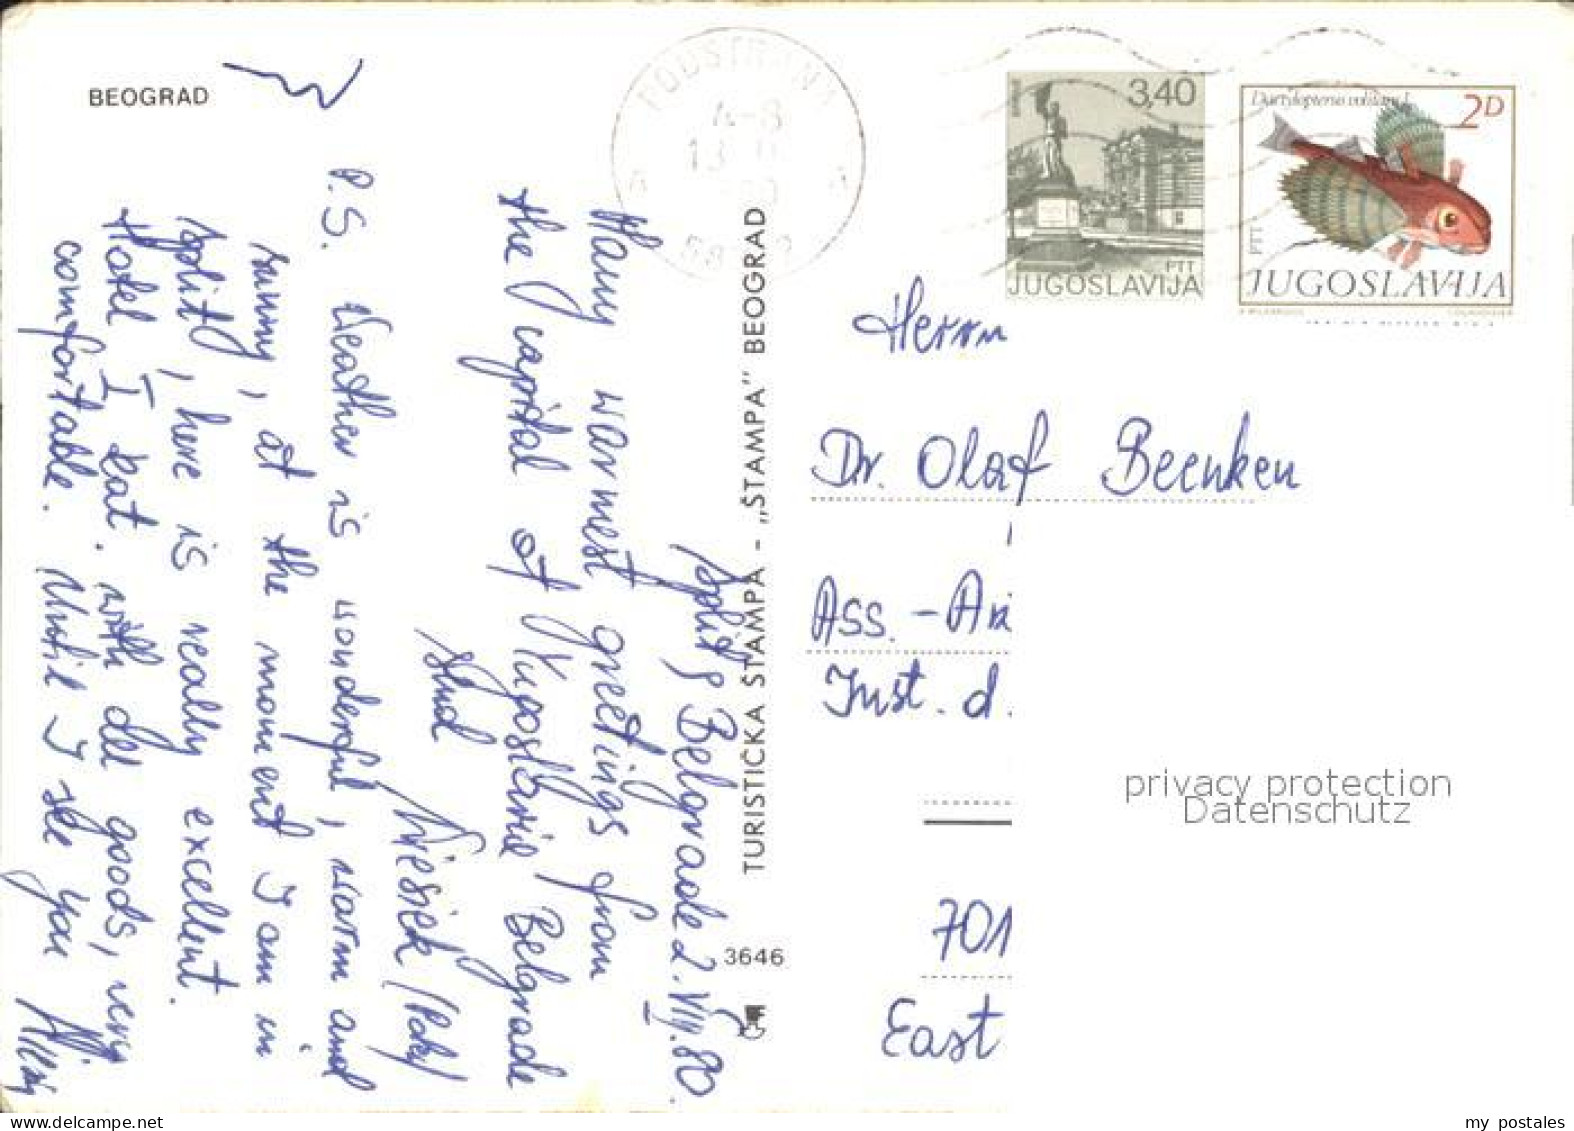 BEOGRAD
PODSTRANA
3,40
PTT
JUGOSLAVIJA
2D
PTT
JUGOSLAVIJA
Split, Belgrade 2. VIII. 80.
Many warmest greetings from
the capital of Yugoslavie Belgrade
P.S. Weather is wonderful, warm and
sunny, at the moment I am in
Split, here is really excellent.
Hotel I kat. with goods, very
comfortable. Until I see you
TURISTIČKA ŠTAMPA - „ŠTAMPA” BEOGRAD
3646
Herrn
Dr. Olaf Beenken
Ass. -
Inst. d.
701
East
privacy protection
Datenschutz
my postales